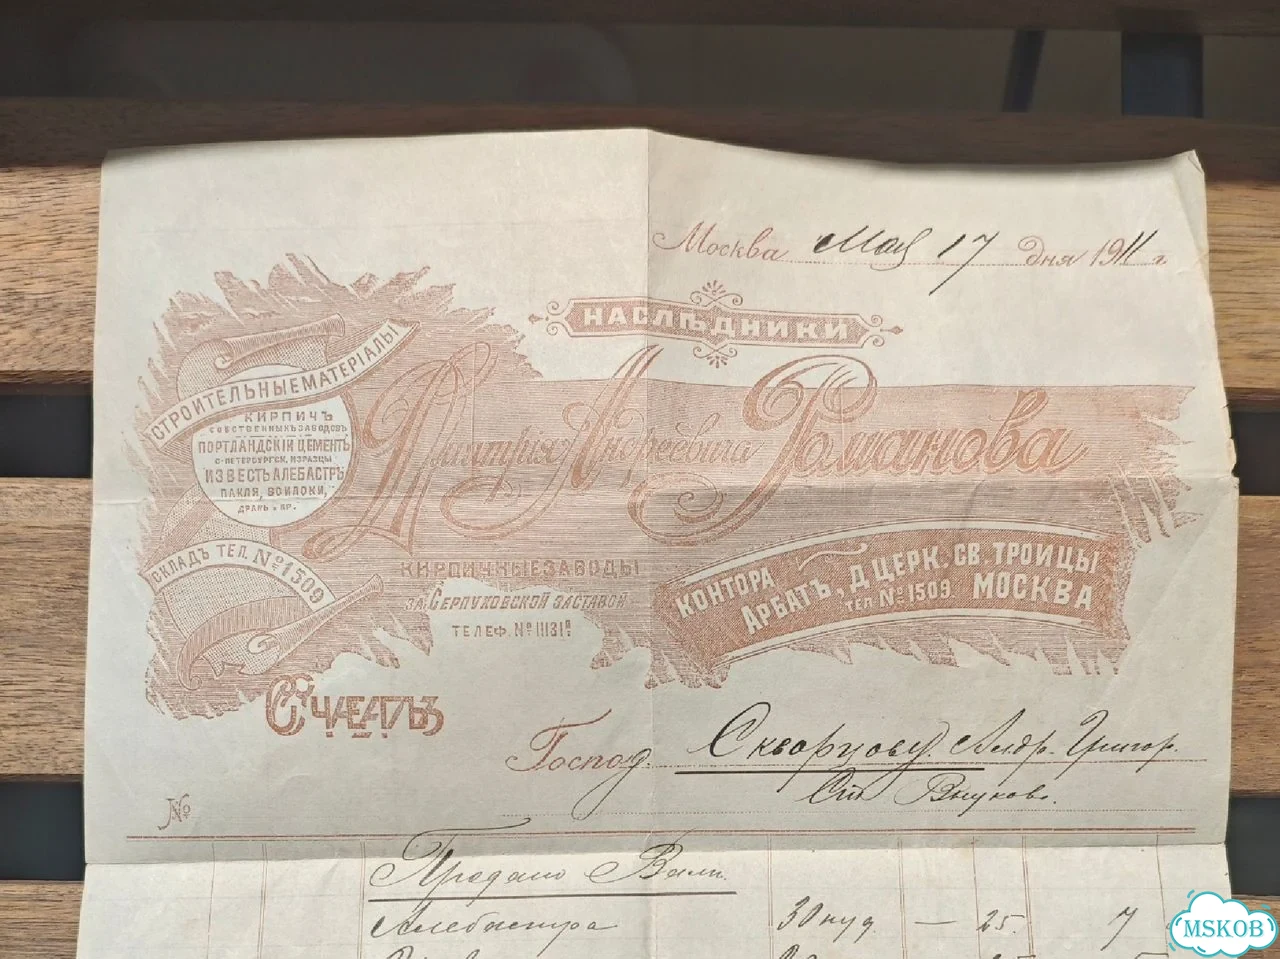 Москва Мая 17 дня 1911 г.
НАСЛѢДНИКИ
Дмитрія Андреевича Романова
СТРОИТЕЛЬНЫЕ МАТЕРІАЛЫ
КИРПИЧЪ
СОБСТВЕННЫХЪ ЗАВОДОВЪ
ПОРТЛАНДСКІЙ ЦЕМЕНТЪ
С-ПЕТЕРБУРГСК. ИЗРАЗЦЫ
ИЗВЕСТЬ АЛЕБАСТРЪ
ПАКЛЯ, ВОЙЛОКИ,
ДРАНЬ и ПР.
СКЛАДЪ ТЕЛ. № 1509
КИРПИЧНЫЕ ЗАВОДЫ
ЗА СЕРПУХОВСКОЙ ЗАСТАВОЙ
ТЕЛЕФ. № 11131й
КОНТОРА
АРБАТЪ, Д. ЦЕРК. СВ. ТРОИЦЫ
ТЕЛ № 1509. МОСКВА
СЧЕТЪ
Господ. Скворцову. Алдр. Григор.
Ст. Внуково.
№
Продано Вамъ.
Алебастра 30 пуд. — 25. 7
MSKOB